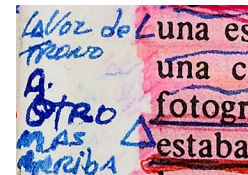 LA VOZ de L
TRONO
A.
OTRO
MAS
ARRIBA
una es
una c
fotogr
estaba